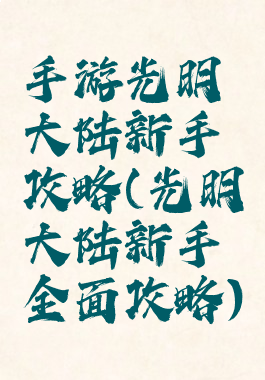 手游光明
大陆新手
攻略(光明
大陆新手
全面攻略)